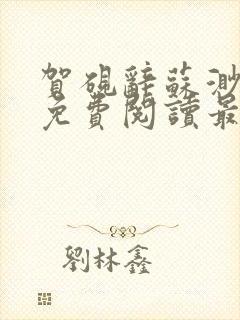 賀硯辭蘇渺
免費閱讀最
劉林鑫